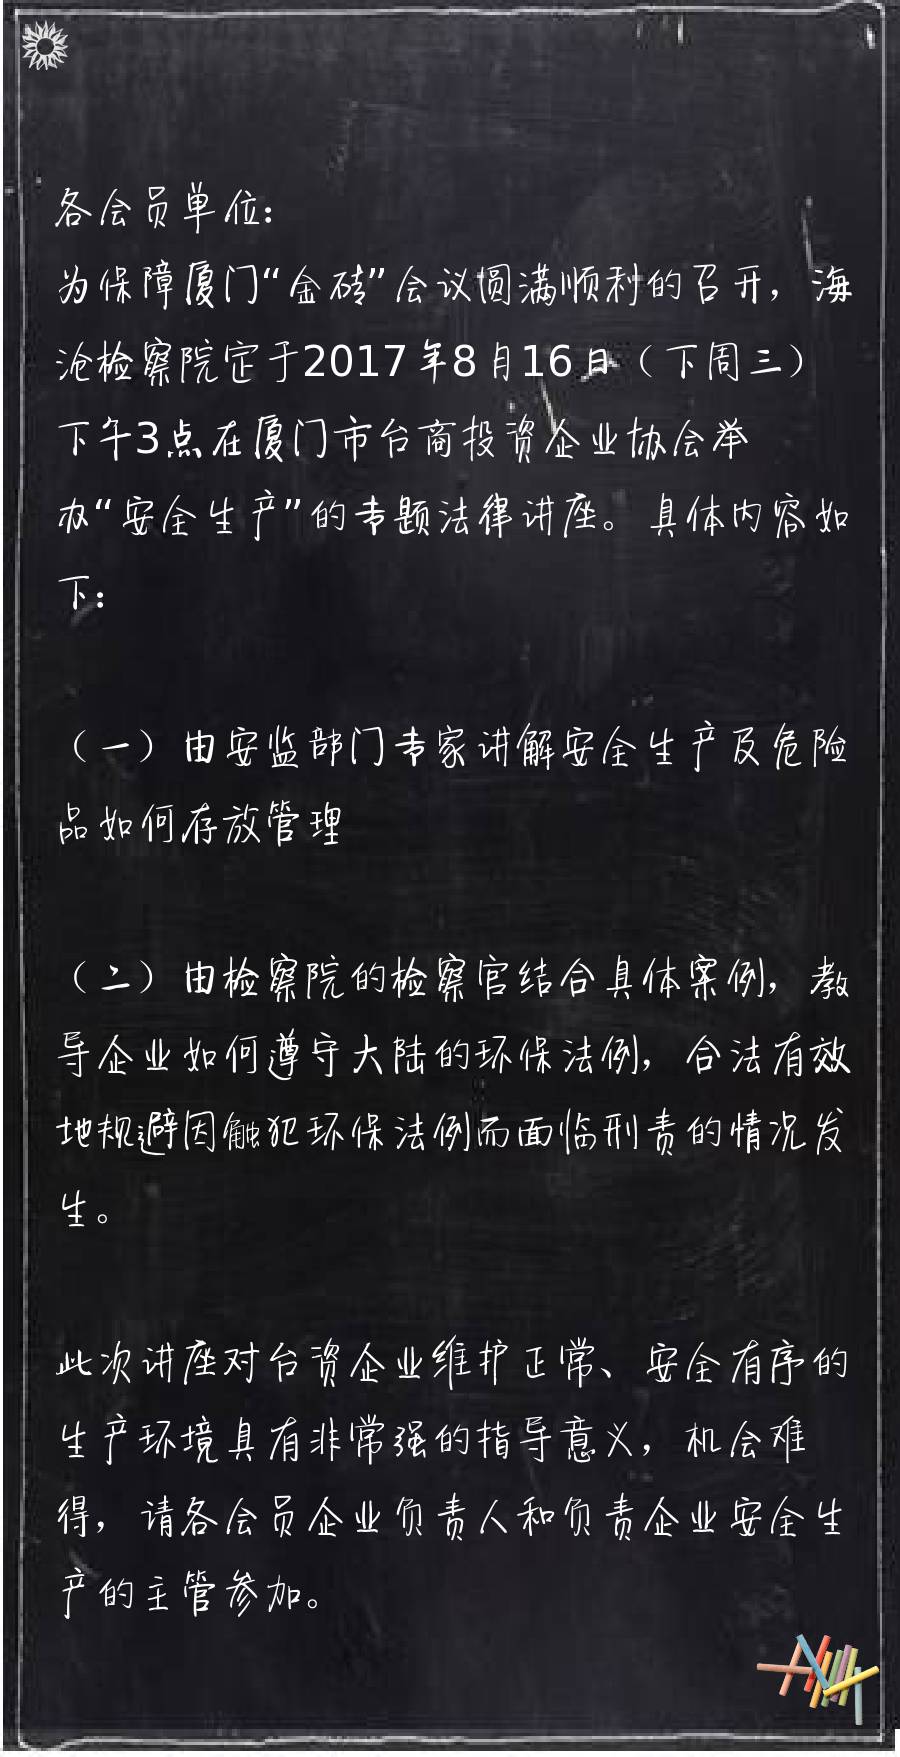 各会员单位:
为保障厦门“金砖”会议圆满顺利的召开，海
沧检察院定于2017年8月16日（下周三）
下午3点在厦门市台商投资企业协会举
办“安全生产”的专题法律讲座。具体内容如
下:
（一）由安监部门专家讲解安全生产及危险
品如何存放管理
（二）由检察院的检察官结合具体案例，教
导企业如何遵守大陆的环保法例，合法有效
地规避因触犯环保法例而面临刑责的情况发
生。
此次讲座对台资企业维护正常、安全有序的
生产环境具有非常强的指导意义，机会难
得，请各会员企业负责人和负责企业安全生
产的主管参加。